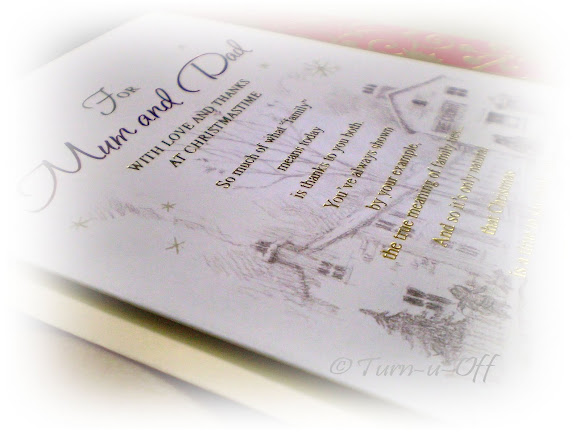 FOR
Mum and Dad
WITH LOVE AND THANKS
AT CHRISTMASTIME
So much of what "family"
means today
is thanks to you both.
You've always shown
by your example,
the true meaning of family ties
And so it's only natural
that Christmas
is a
© Turn-u-Off